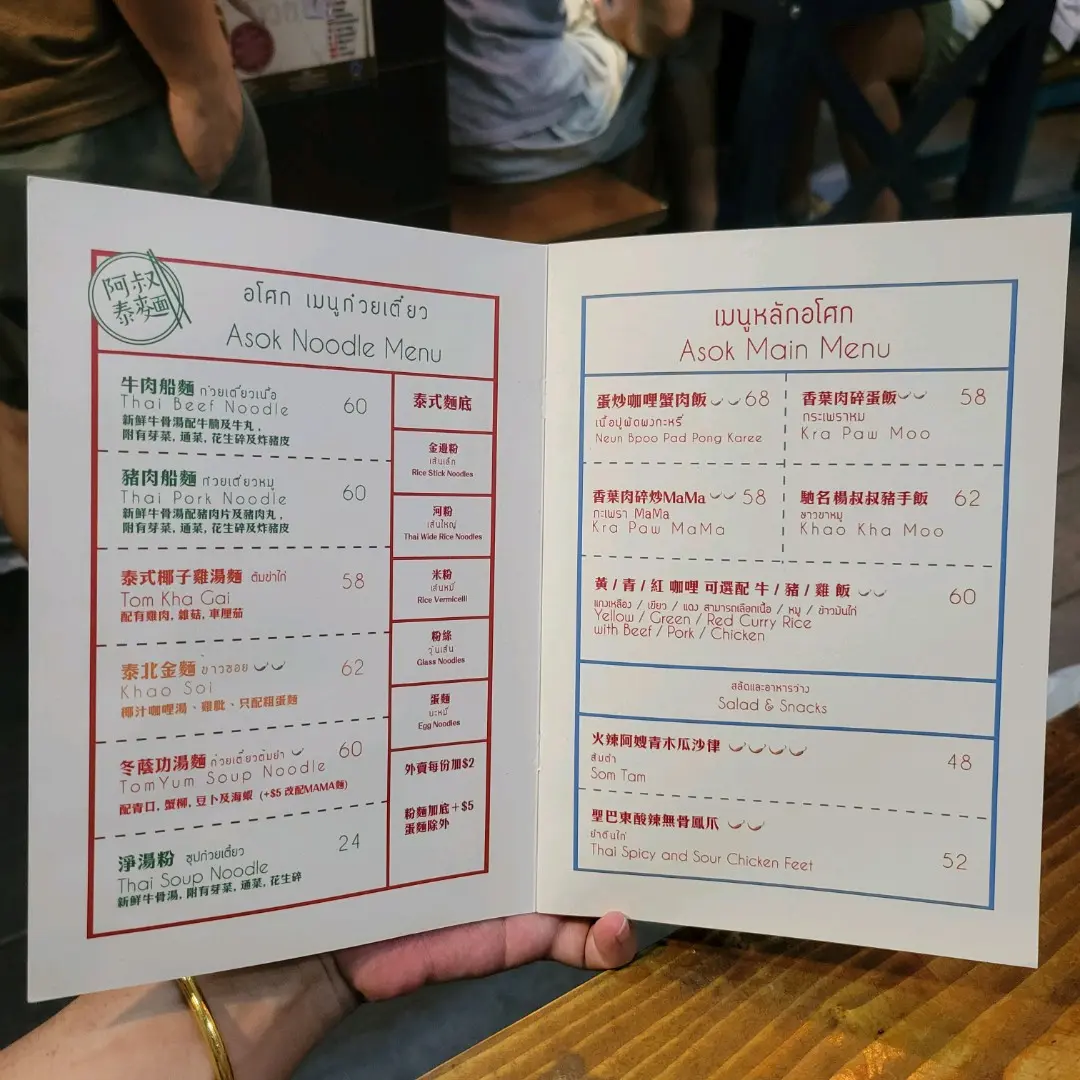 阿叔
泰麵
อโศก เมนูก๋วยเตี๋ยว
Asok Noodle Menu
牛肉船麵 ก๋วยเตี๋ยวเนื้อ
Thai Beef Noodle
60
新鮮牛骨湯配牛腩及牛丸,
附有芽菜, 通菜, 花生碎及炸豬皮
豬肉船麵 ก๋วยเตี๋ยวหมู
Thai Pork Noodle
60
新鮮牛骨湯配豬肉片及豬肉丸,
附有芽菜, 通菜, 花生碎及炸豬皮
泰式椰子雞湯麵 ต้มข่าไก่
Tom Kha Gai
58
配有雞肉, 雜菇, 車厘茄
泰北金麵 ข้าวซอย
Khao Soi
62
椰汁咖哩湯、雞髀、只配粗蛋麵
冬蔭功湯麵 ก๋วยเตี๋ยวต้มยำ
TomYum Soup Noodle
60
配青口, 蟹柳, 豆卜及海蝦 (+$5 改配MAMA麵)
淨湯粉 ซุปก๋วยเตี๋ยว
Thai Soup Noodle
24
新鮮牛骨湯, 附有芽菜, 通菜, 花生碎
泰式麵底
金邊粉
เส้นเล็ก
Rice Stick Noodles
河粉
เส้นใหญ่
Thai Wide Rice Noodles
米粉
เส้นหมี่
Rice Vermicelli
粉絲
วุ้นเส้น
Glass Noodles
蛋麵
บะหมี่
Egg Noodles
外賣每份加$2
粉麵加底+$5
蛋麵除外
เมนูหลักอโศก
Asok Main Menu
蛋炒咖哩蟹肉飯 68
เนื้อปูผัดผงกะหรี่
Neun Bpoo Pad Pong Karee
香葉肉碎蛋飯 58
กระเพราหม
Kra Paw Moo
香葉肉碎炒MaMa 58
กะเพรา MaMa
Kra Paw MaMa
馳名楊叔叔豬手飯 62
ขาวขาหมู
Khao Kha Moo
黃 / 青 / 紅 咖哩 可選配 牛 / 豬 / 雞 飯
60
แกงเหลือง / เขียว / แดง สามารถเลือกเนื้อ / หมู / ข้าวมันไก่
Yellow / Green / Red Curry Rice
with Beef / Pork / Chicken
สลัดและอาหารว่าง
Salad & Snacks
火辣阿嫂青木瓜沙律
48
ส้มตำ
Som Tam
聖巴東酸辣無骨鳳爪
ยำตีนไก่
Thai Spicy and Sour Chicken Feet
52